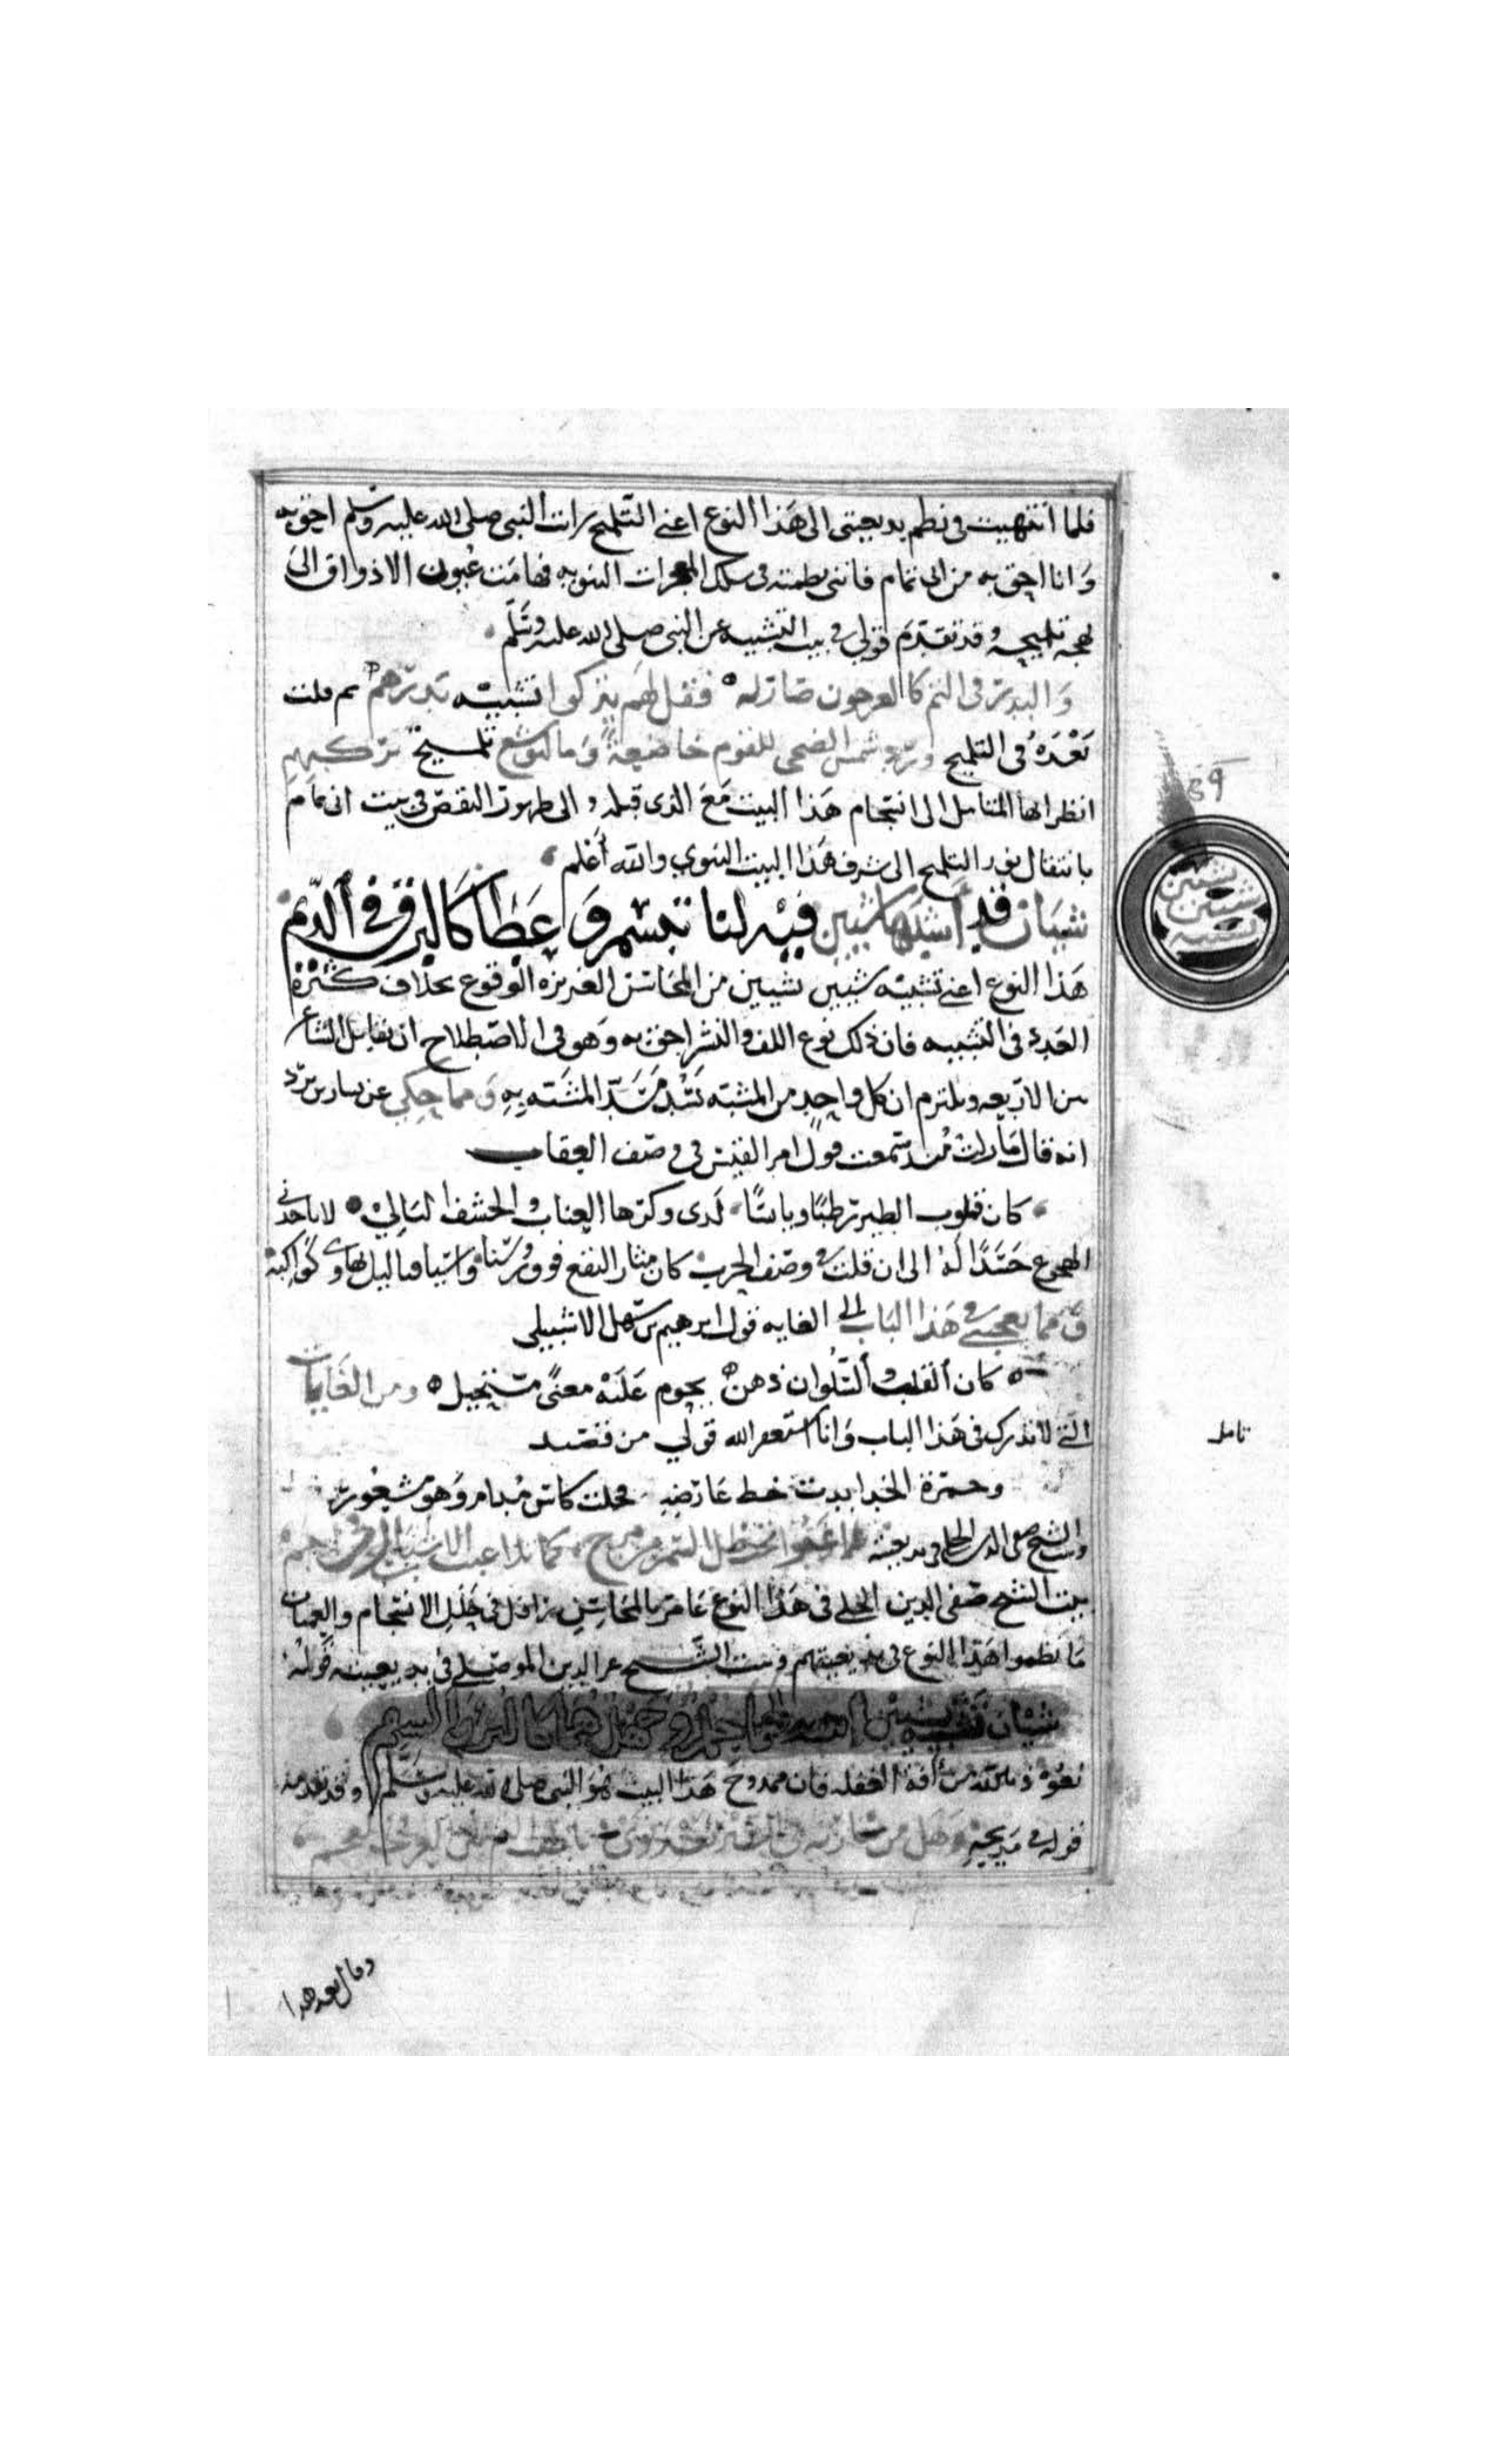 فلما انتهيت في نظم بديعيتي الى هذا النوع اعني التلميح رات النبي صلى الله عليه وسلم احق به
وانا احق به من ابي تمام فانني نظمته في سلك المعجزات النبويه فهامت عيون الاذواق الى
بهجة تلميحه وقد تقدم قولي في بيت التشبيه عن النبي صلى الله عليه وسلم
والبدر في التم كالعرجون صار له فقل لهم يتركوا تشبيه بدرهم ثم قلت
بعده في التلميح ورد شمس الضحى للقوم خاضعة وما ليوشع تلميح بركبهم
انظر ايها المتامل الى انسجام هذا البيت مع الذي قبله والى ظهور النقص في بيت ابي تمام
بانتقال نور التلميح الى شرف هذا البيت النبوي والله أعلم
شيئان قد أشبها شيئين فيه لنا تبسم وعطا كالبرق في الديم
هذا النوع اعني تشبيه شيئين بشيئين من المحاسن العزيزه الوقوع بخلاف كثرة
العدد في التشبيه فان ذلك نوع اللف والنشر احق به وهو في الاصطلاح ان يقابل الشاعر
من الاربعه ويلتزم ان كل واحد من المشبه يسد مسد المشبه به ومما حكي عن بشار بن برد
انه قال مازلت مند سمعت قول امرالقيس في وصف العقاب
كان قلوب الطير رطبا ويابسا لدى وكرها العناب والحشف البالي لا ياخذني
الهجوع حسدا له الى ان قلت في وصف الحرب كان مثار النقع فوق رءسنا واسيافنا ليل تهاوى كواكبه
ومما يعجبني في هذا الباب الى الغايه قول ابرهيم بن سهل الاشبيلي
كان القلب والسلوان ذهن يحوم عليه معنى مستحيل ومن الغايات
التي لا تدرك في هذا الباب وانا استغفر الله قولي من قصيد
وحمرة الخد ابدت خط عارضه فخلت كاس مدام وهو مشعور
وبيت الشيخ صفي الدين الحلي في بديعيته تلاعبوا تحت ظل السمر من مرح كما تلاعبت الاشبال في الاجم
بيت الشيخ صفي الدين الحلي في هذا النوع عامر بالمحاسن رافل في حلل الانسجام والعميان
ما نظموا هذا النوع في بديعيتهم وبيت الشيخ عز الدين الموصلي في بديعيته قوله
شيئان تشبيه شيئين انتبه لهما حلم وجهل هما كالبرء والسقم
نعوذ بالله من آفة الغفله فان ممدوح هذا البيت هو النبي صلى الله عليه وسلم وقد تقدمه
قوله في مديحه
وقال بعد هذا
تامل
شيئين
بشيئين
تشبيه